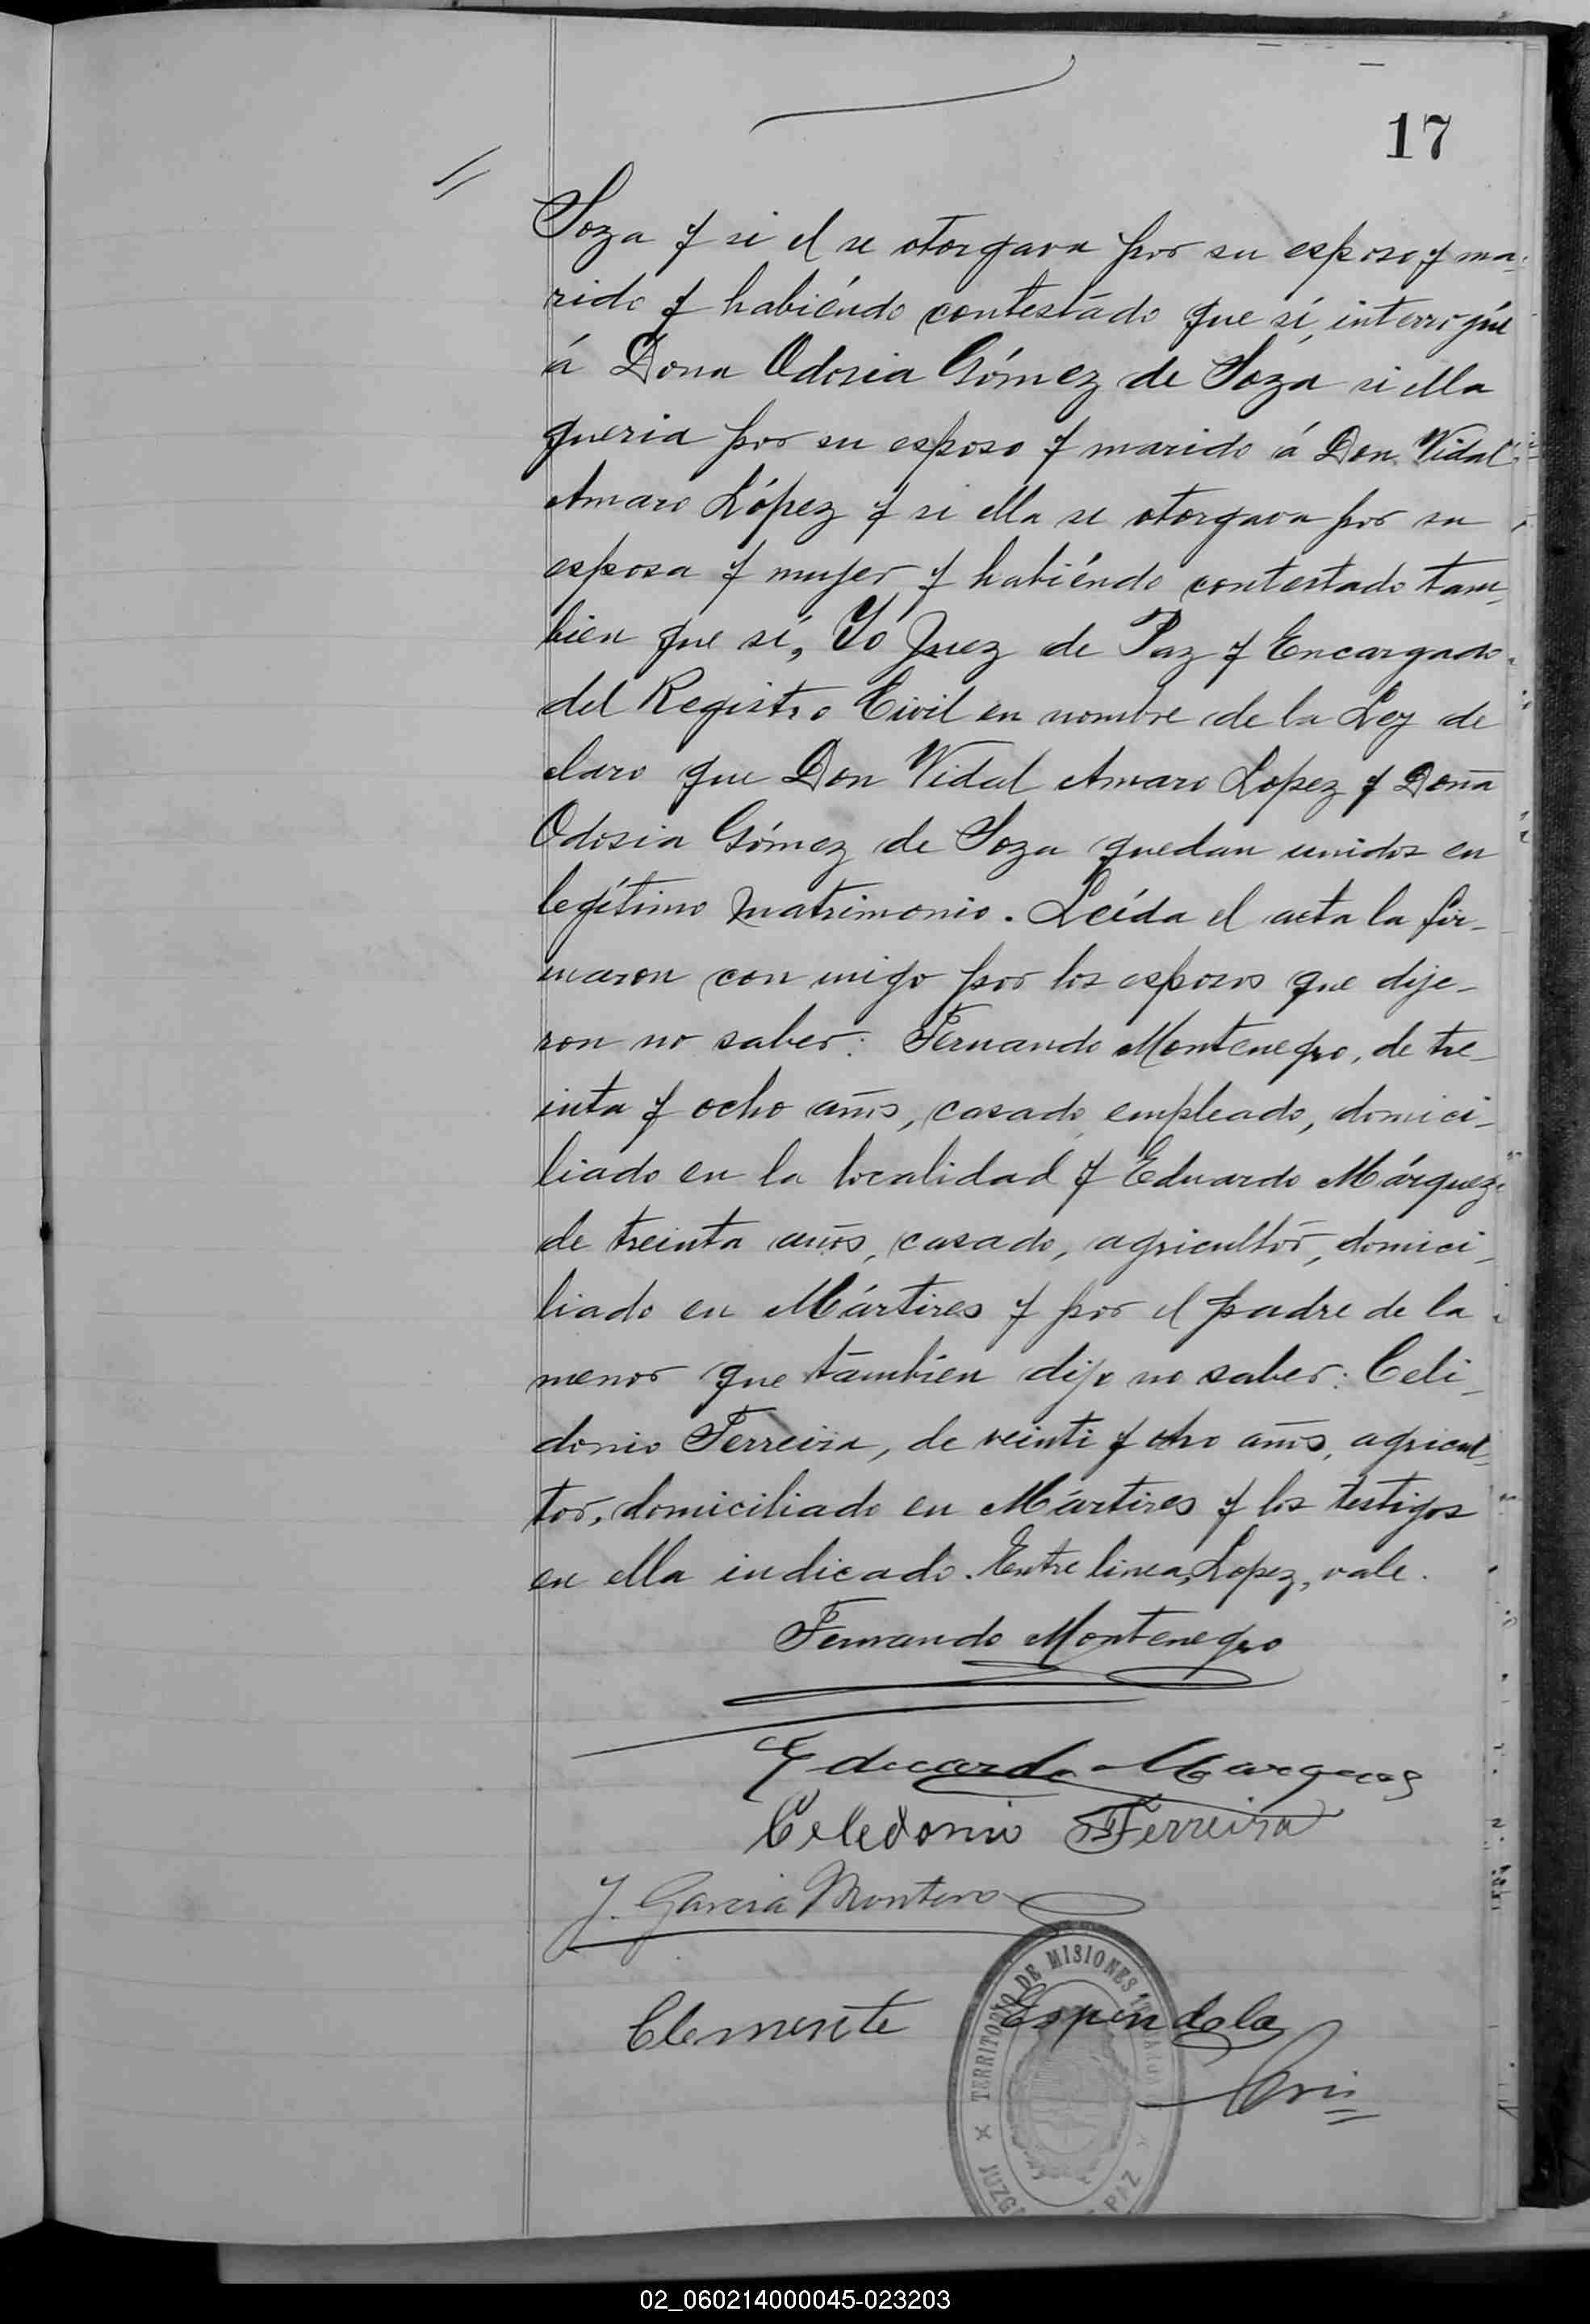 17
Soza y si el se otorgava por su esposo y ma-
rido y habiéndo contestado que sí, interrogúe
á Dona Odosia Gómez de Soza si ella
queria por su esposo y marido á Don Vidal
Amaro López y si ella se otorgava por su
esposa y mujer y habiéndo contestado tam-
bien que sí, Yó Juez de Paz y Encargado
del Registro Civil en nombre de la Ley de
claro que Don Vidal Amaro Lopez y Doña
Odosia Gómez de Soza quedan unidos en
legítimo matrimonio. Leída el acta la fir-
maron con migo por los esposos que dije-
ron no saber: Fernando Montenegro, de tre-
inta y ocho años, casado, empleado, domici-
liado en la localidad y Eduardo Márquez
de treinta años, casado, agricultor, domici-
liado en Mártires y por el padre de la
menor que tambien dijo no saber: Celi-
donio Ferreira, de veinti y ocho años, agricul-
tor, domiciliado en Mártires y los testigos
en ella indicado. Entre linea, Lopez, vale.
Fernando Montenegro
Eduardo Marques
Celedonio Ferreira
J. Garcia Montero
Clemente Espindola
TERRITORIO DE MISIONES
JUZG PAZ
02_060214000045-023203